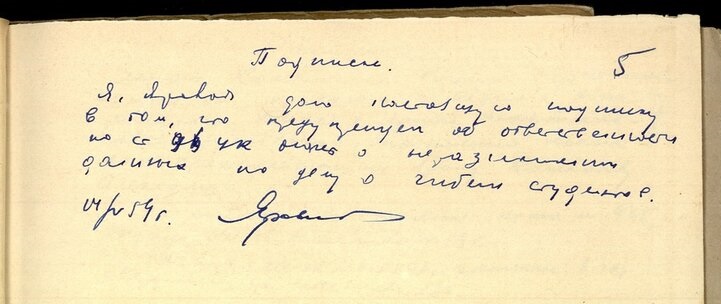 Подписка.
5
Я, Яровой даю настоящую подписку
в том, что предупрежден об ответственности
по ст 96 УК о неразглашении
данных по делу о гибели студентов.
59 г.